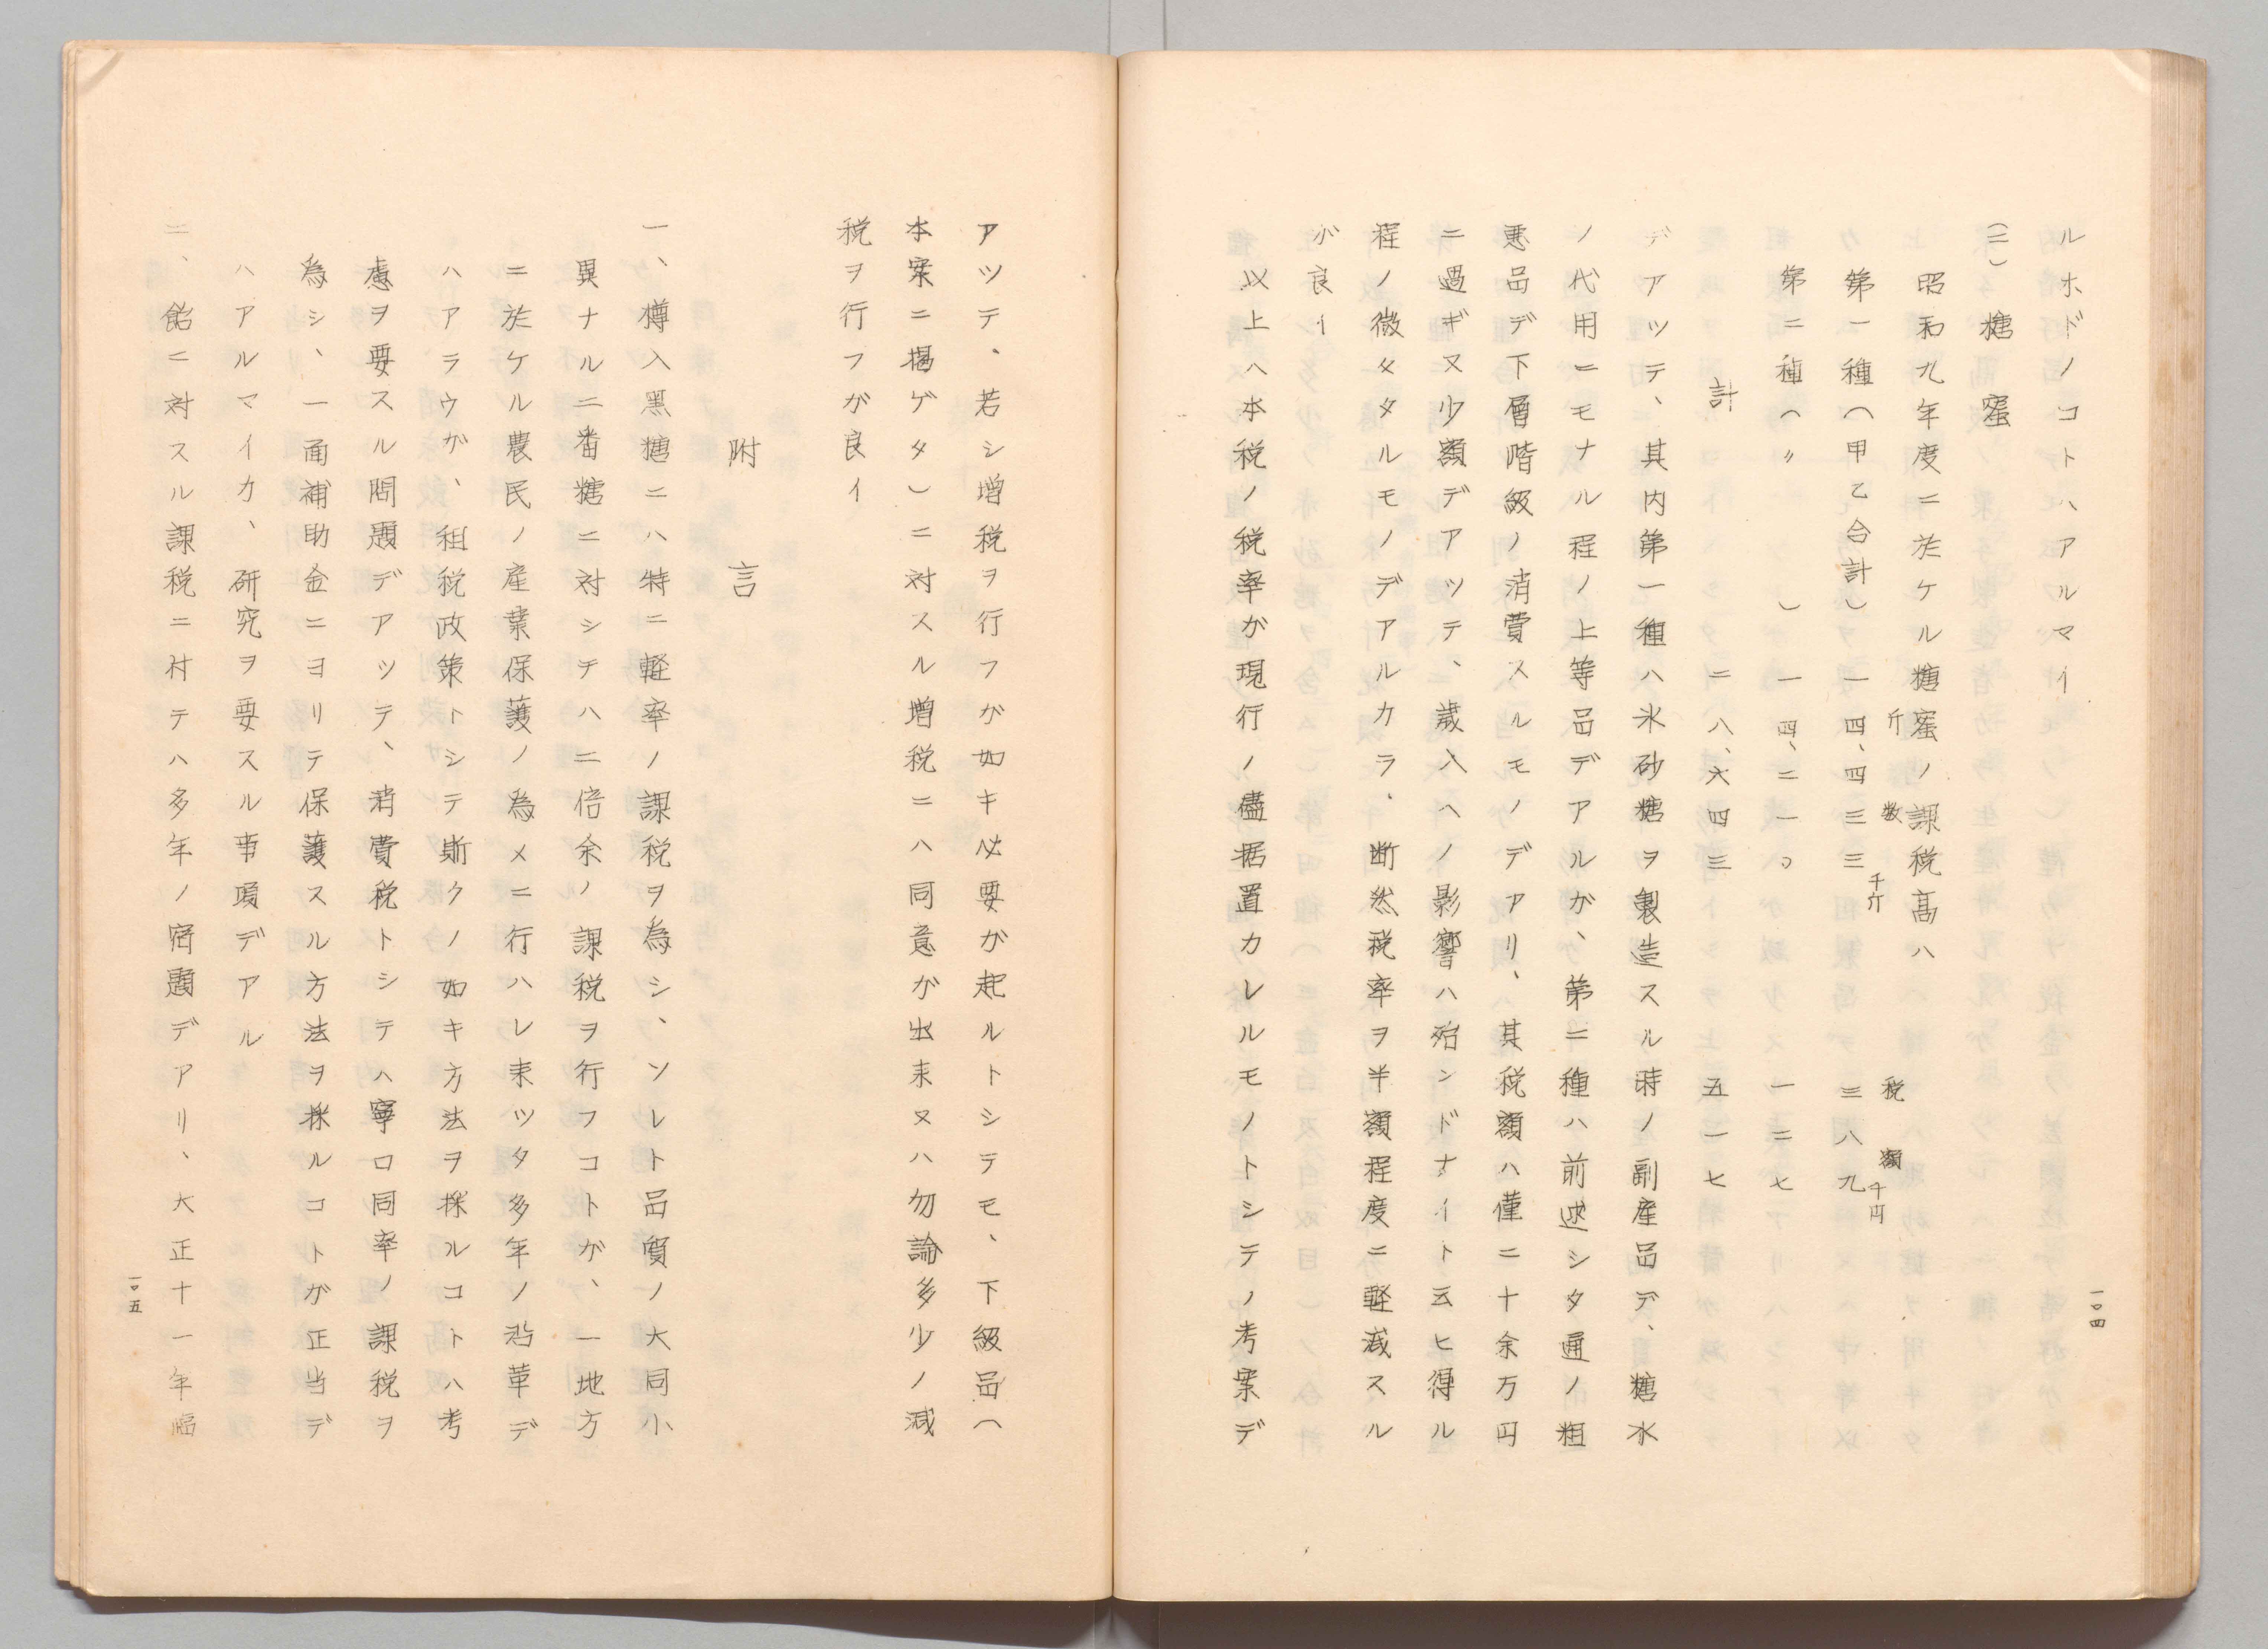 ルホドノコトハアルマイ
(二) 糖蜜
昭和九年度ニ於ケル糖蜜ノ課税高ハ
斤数 税額
第一種(甲乙合計) 一四、四三三千斤 三八九千円
第二種(〃 ) 一四、二一〇 一二七
計 二八、六四三 五一七
デアツテ、其内第一種ハ氷砂糖ヲ製造スル時ノ副産品デ、糖水
ノ代用ニモナル程ノ上等品デアルガ、第二種ハ前述シタ通ノ粗
悪品デ下層階級ノ消費スルモノデアリ、其税額ハ僅ニ十余万円
ニ過ギヌ少額デアツテ、歳入ヘノ影響ハ殆ンドナイト云ヒ得ル
程ノ微々タルモノデアルカラ、断然税率ヲ半額程度ニ軽減スル
ガ良イ
以上ハ本税ノ税率ガ現行ノ儘据置カレルモノトシテノ考案デ
一〇四
アツテ、若シ増税ヲ行フガ如キ必要ガ起ルトシテモ、下級品(
本案ニ掲ゲタ)ニ対スル増税ニハ同意ガ出来ヌハ勿論多少ノ減
税ヲ行フガ良イ
附言
一、樽入黒糖ニハ特ニ軽率ノ課税ヲ為シ、ソレト品質ノ大同小
異ナル二番糖ニ対シテハ二倍余ノ課税ヲ行フコトガ、一地方
ニ於ケル農民ノ産業保護ノ為メニ行ハレ来ツタ多年ノ沿革デ
ハアラウガ、租税政策トシテ斯クノ如キ方法ヲ採ルコトハ考
慮ヲ要スル問題デアツテ、消費税トシテハ寧ロ同率ノ課税ヲ
為シ、一面補助金ニヨリテ保護スル方法ヲ採ルコトガ正当デ
ハアルマイカ、研究ヲ要スル事項デアル
二、飴ニ対スル課税ニ付テハ多年ノ宿題デアリ、大正十一年臨
一〇五